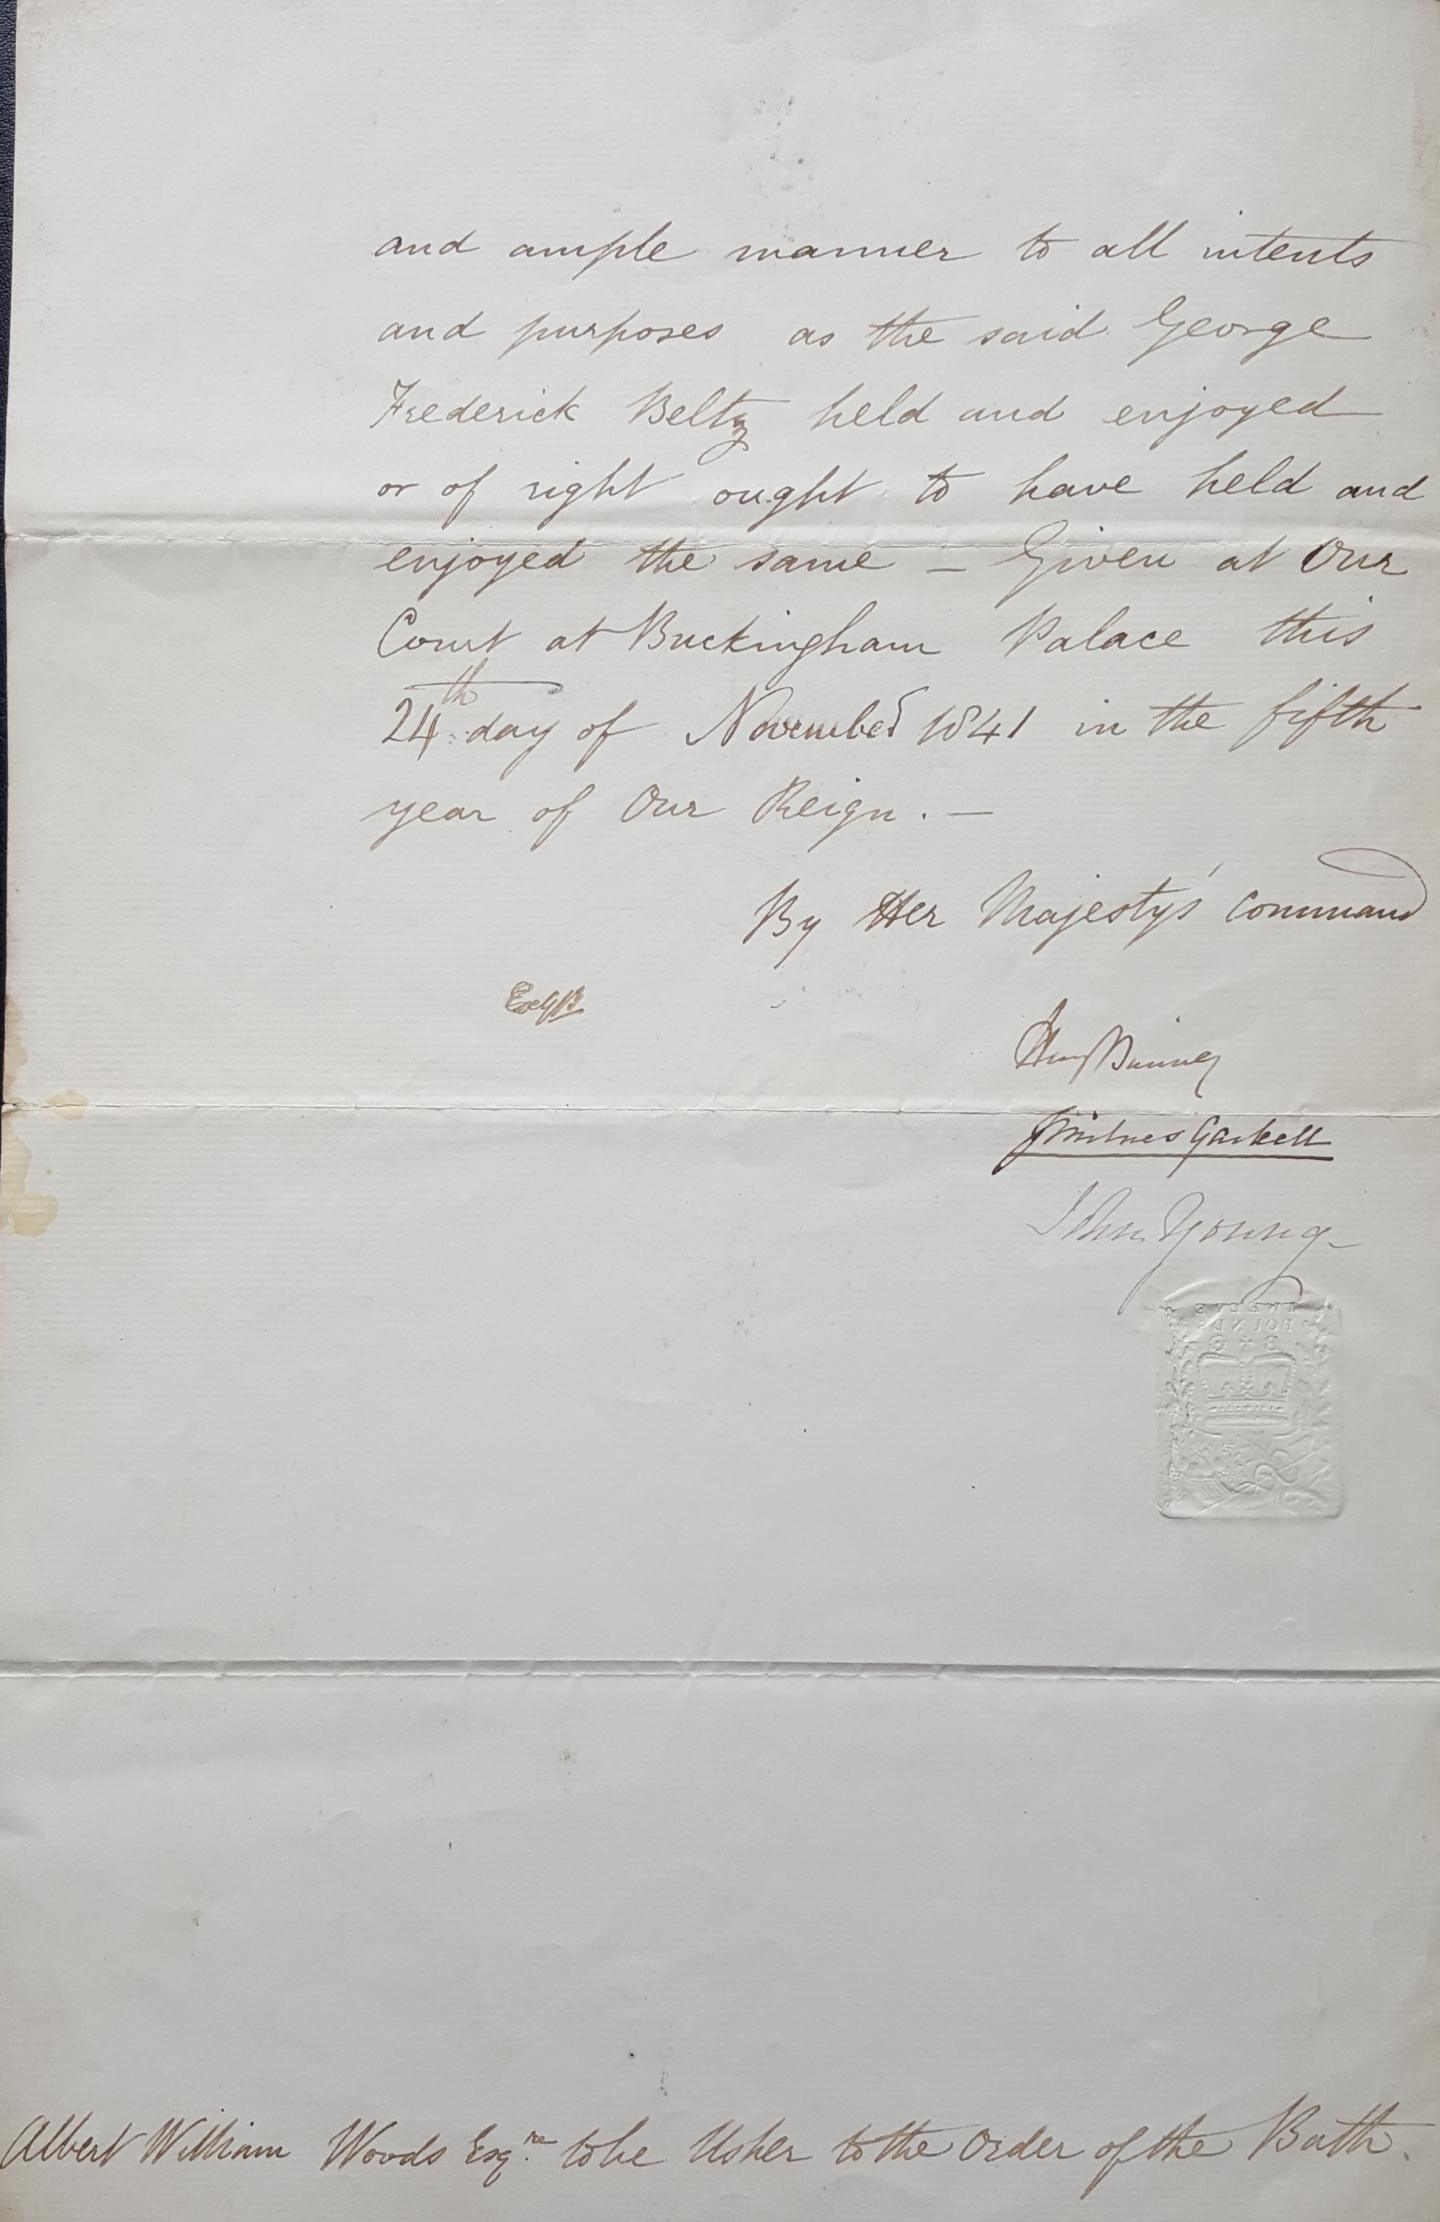 and ample manner to all intents
and purposes as the said George
Frederick Beltz held and enjoyed
or of right ought to have held and
enjoyed the same — Given at Our
Court at Buckingham Palace this
24th day of November 1841 in the fifth
year of Our Reign. —
By Her Majesty's Command
Milnes Gaskell
John Young
TWELVE
POUNDS
Albert William Woods Esqre. to be Usher to the Order of the Bath.